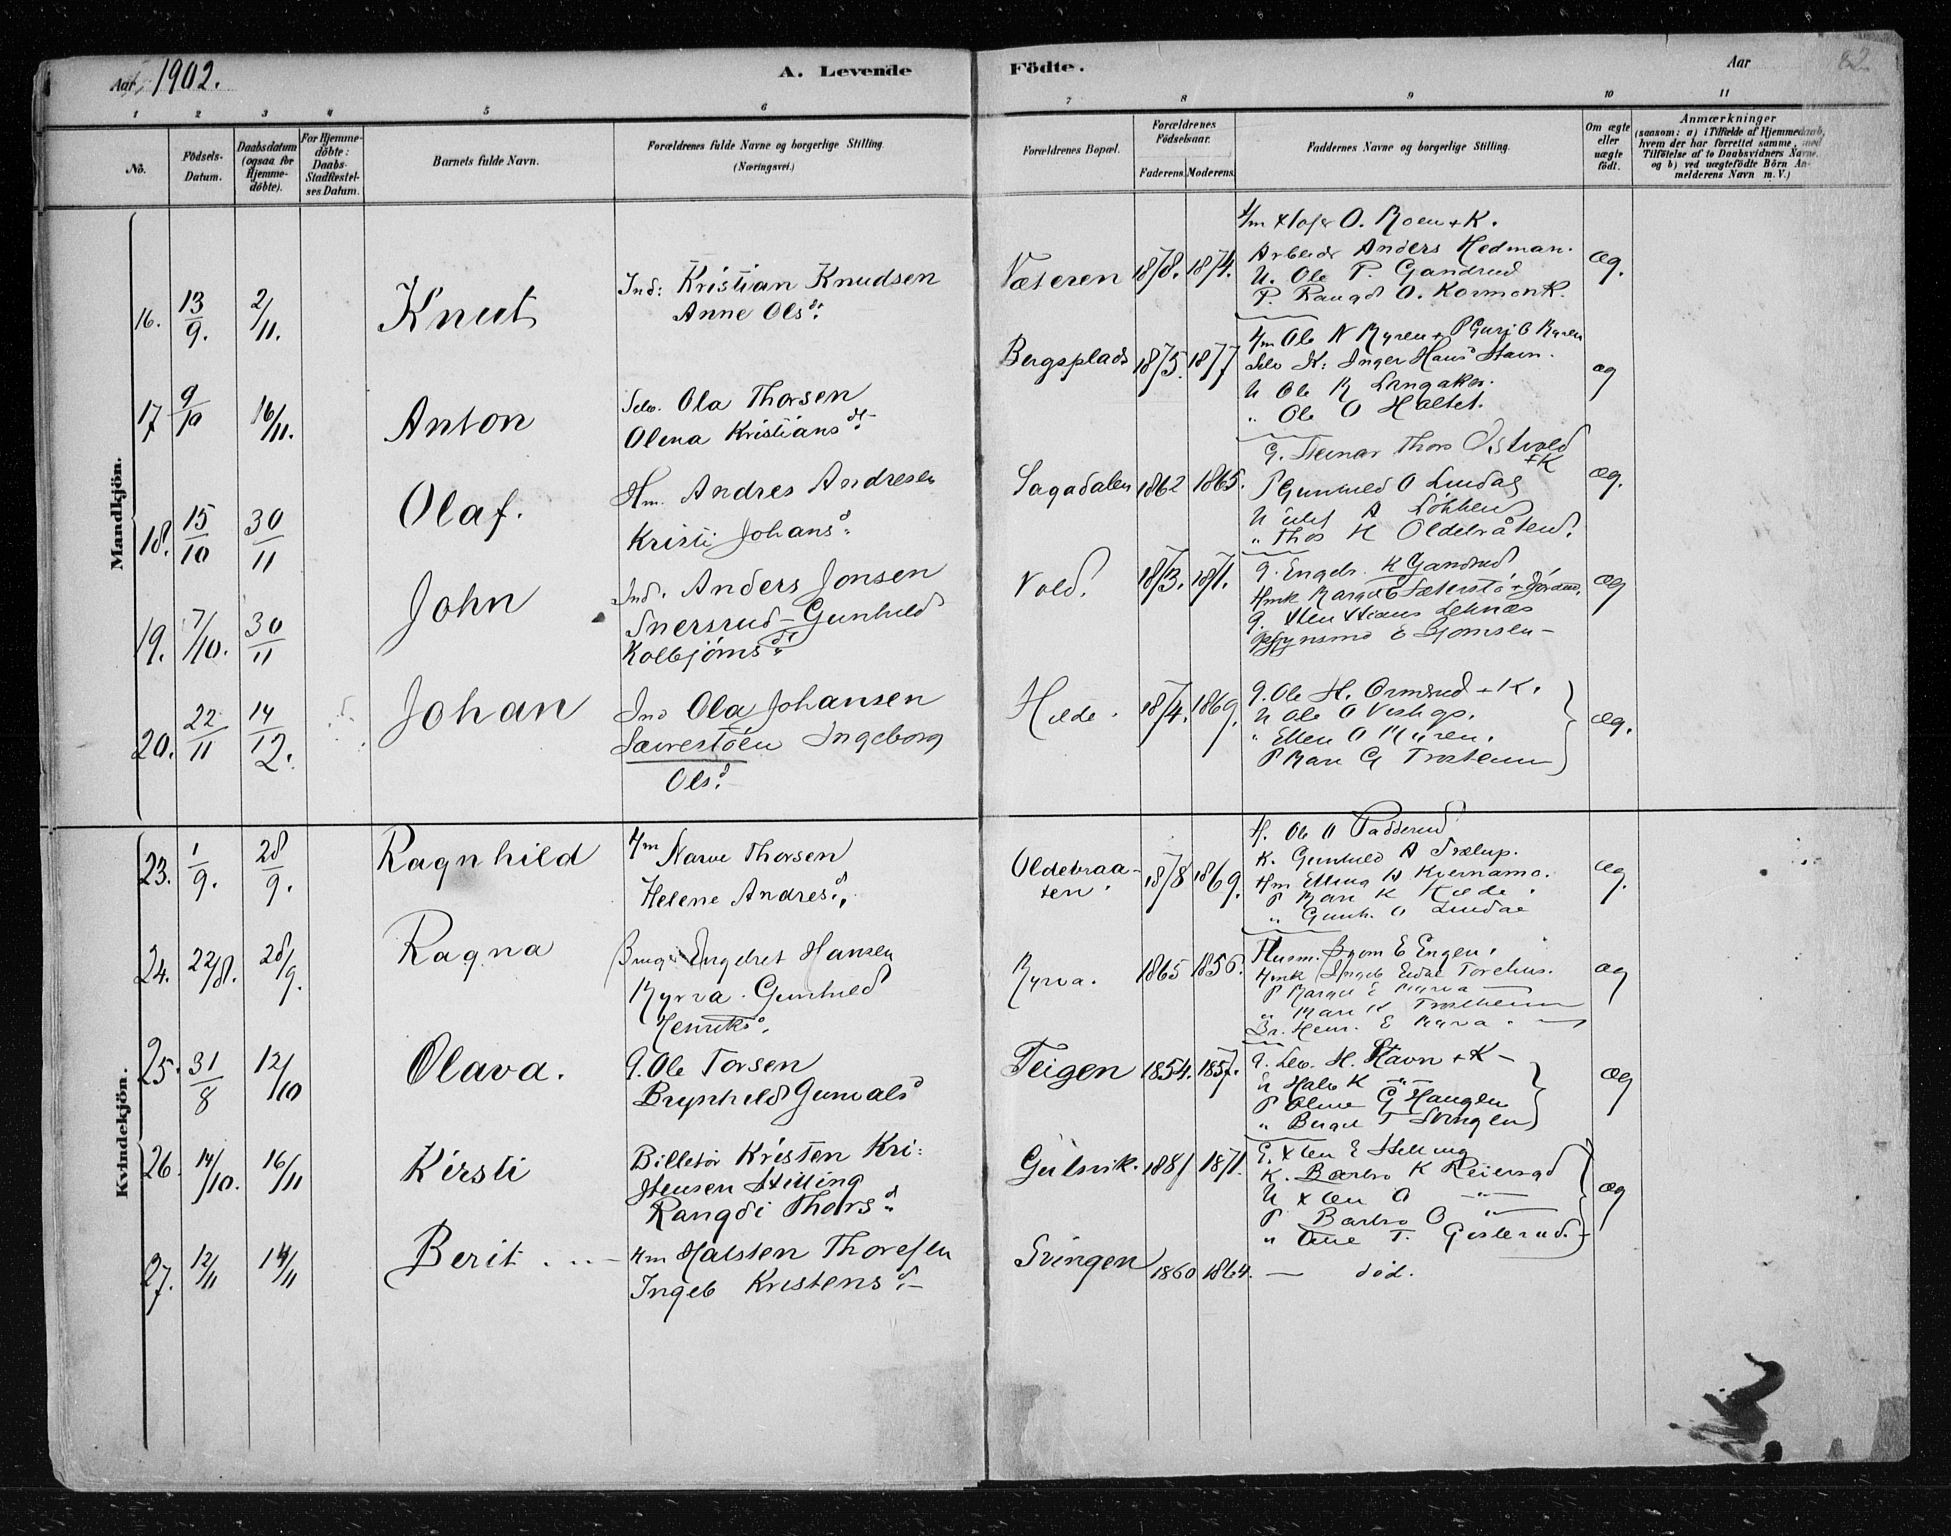 Aar 1902.
A. Levende
Födte.
Aar
82
1 2 3 4 5 6
7 8 9 10 11
No.
Födsels-Datum.
Daabsdatum (ogsaa for Hjemme-döbte).
For Hjemme-döbte: Daabs-Stadfæstel-ses Datum.
Barnets fulde Navn.
Forældrenes fulde Navne og borgerlige Stilling. (Næringsvei.)
Forældrenes Bopæl.
Forældrenes Födselsaar.
Faderens. Moderens.
Faddernes Navne og borgerlige Stilling.
Om ægte eller uægte födt.
Anmærkninger
(saasom: a) i Tilfælde af Hjemmedaab,
hvem der har forrettet samme, med
Tilföielse af to Daabsvidners Navne,
og b) ved uægtefödte Börn An-
melderens Navn m. V.)
Mandkjön.
16. 13/9. 2/11. Knut
Ind: Kristian Knudsen
Anne Olsd.
Væteren 1878. 1874.
O. Moen + K.
Arbeider Anders Hedman.
U. Ole P. Gandrud
P. Rangd O. Kormon K.
æg.
17 9/10 16/11. Anton
Selv. Ola Thorsen
Olena Kristiansdt.
Bergsplads 1875. 1877
Hm Ole N Myren + P Guri O Myren
Selv K: Inger Hans Stavn.
U Ole
" Ole O Haltet.
æg
18. 15/10 30/11 Olaf.
Hm. Andres Andresen
Kristi Johansd.
Sagadalen 1862 1865.
G. Steinar Thors Østvold
+ K
P Gunhild O Lindal
" Thos H Oldebråten.
æg.
19. 7/10. 30/11 John
Ind. Anders Jonsen
Snersrud - Gunhild
Kolbjørnsdt.
Vold. 1873. 1871.
G. Engebr. K Gandrud.
æg
20. 22/11 14/12. Johan
Ind Ola Johansen
Sævrestøen Ingeborg
Olsd.
Hilde. 1874. 1869.
G. Ole H. Ormerud + K.
U Ole O
" Ellen O Myren.
P Mari G Trostheim
æg.
Kvindekjön.
23. 1/9. 28/9. Ragnhild
Hm Narve Thorsen
Helene Andresd.
Oldebraa-
ten. 1878 1869.
H. Ole O Padderud
K. Gunhild A Trælup.
Hm Elling A Kvernamo.
P Mari K Hilde.
" Gunh. O Lindal
æg.
24. 22/8. 28/9. Ragna
Brug. Engebret Hansen
Myrva. Gunhild
Henriksd.
Myrva. 1865 1856.
Husm. Bjørn E Engen.
P Margit E Myrva
" Mari K Trostheim
Br. Henr. E Myrva.
æg
25. 31/8 12/10 Olava.
G. Ole Torsen
Brynhild Gunvalsd
Teigen 1854. 1857.
G. Lev. H. Stavn + K -
U Halv K "
P Oline G Haugen
" Berget T Svingen
æg
26. 14/10. 16/11 Kirsti
Billetør Kristen Kri-
stensen Stilling
Rangdi Thorsd.
Gulsvik. 1881 1871.
G. Xten E Stilling
K. Barbro K Reiersgd
U Xten O "
P Barbro O "
" Ane T. Gislerud.
æg
27. 12/11 14/11 Berit
Hm Halsten Thoresen
Ingeb Kristensd.
Svingen 1860 1864. — død.